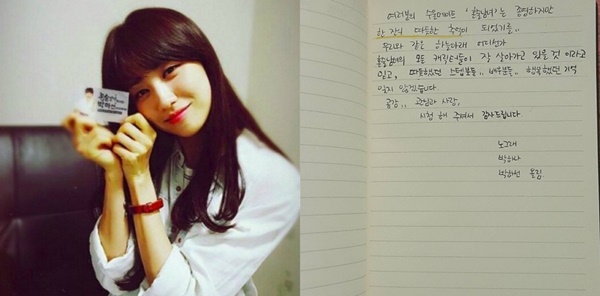 혼술남녀
박하선
여러분의 수울메이트 '혼술남녀'는 종영하지만
한 잔의 따뜻한 추억이 되었기를..
우리와 같은 하늘아래 어디선가
혼술남녀의 모든 캐릭터들이 잘 살아가고 있을 것 이라고
믿고, 따뜻했던 스텝분들.. 배우분들.. 행복했던 기억
잊지 않겠습니다
공감.. 관심과 사랑,
시청 해 주셔서 감사드립니다
노그래
박하나
박하선 올림